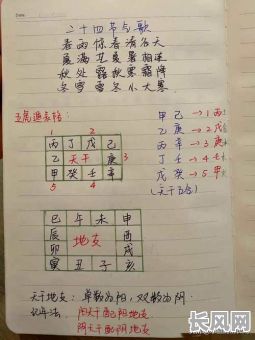 Date
二十四节气歌
春雨惊春清谷天
夏满芒夏暑相连
秋处露秋寒霜降
冬雪雪冬小大寒
五虎遁表格:
1 2
丙 丁 戊 己
乙 天干 庚 3
甲 癸 壬 辛
5 4
甲己→1丙
乙庚→2戊
丙辛→3庚
丁壬→4壬
戊癸→5甲
(天干五合)
巳 午 未 申
辰 酉
卯 地支 戌
寅 丑 子 亥
天干地支: 单数为阳,双数为阴
记年法. 阳天干配阳地支
阴天干配阴地支
长风网